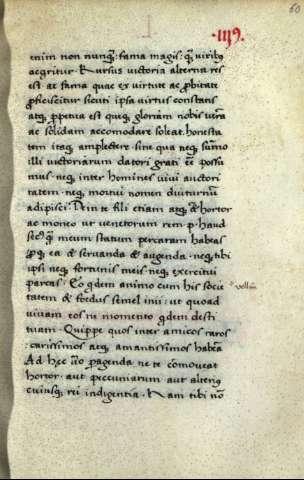 60
enim non nunq; fama magis q; viribꝰ
aegritur. Rursus victoria alterna res
est. ac fama quae ex virtute ac probitate
proficiscitur sicuti ipsa virtus constans
atq; perpetua est queq; gloriam nobis veram
ac solidam accomodare soleat. honesta
tem itaq; amplectere. sine qua neq; summo
illi victoriarum datori grati esse possu
mus. neq; inter homines vivi auctori
tatem. neq; mortui nomen diuturnum
adipisci. Dein te fili etiam atq; etiam hortor
ac moneo ut venetorum rem p. haud
secus q; meum statum percaram habeas
pro q; ea et servanda et augenda. neq; tibi
ipsi neq; fortunis meis neq; exercitui
parcas. Eo qdem animo cum his socie
tatem et foedus semel inii. ut quoad
vivam eos ni momento qdem desti
tuam. Quippe quos inter amicos raros
carissimos atq; amantissimos habeam
Ad hec uero peragenda ne te comoueat
hortor. aut peccuniarum aut alterius
cuiusq; rei indigentia. Nam tibi non